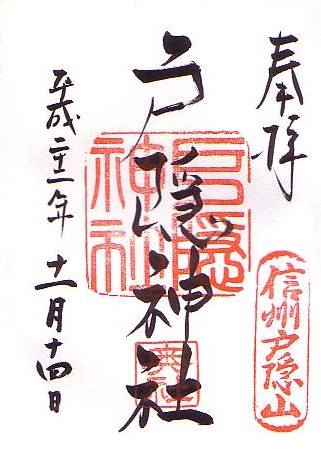 奉拝
戸隠神社
平成二十二年十一月十四日
戸隠神社
信州戸隠山
奥社